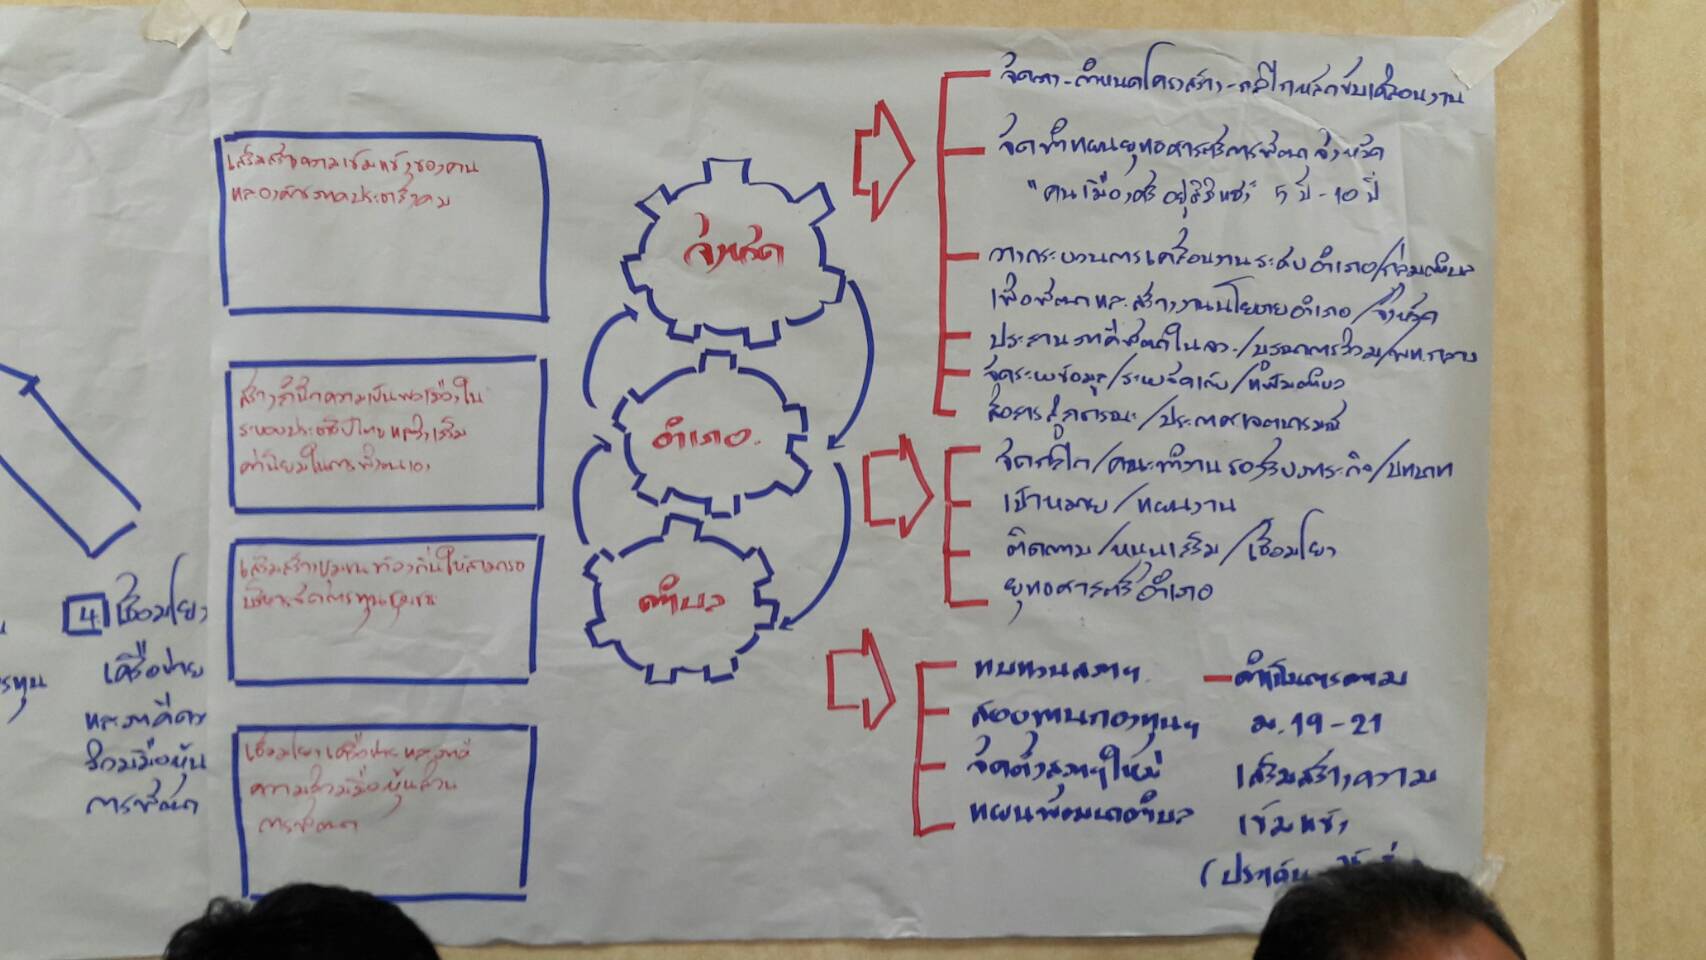 เสริมสร้างความเข้มแข็งของคน
และองค์กรภาคประชาสังคม
สร้างสำนึกความเป็นพลเมืองใน
ระบอบประชาธิปไตยและส่งเสริม
ค่านิยมในการพึ่งตนเอง
เสริมสร้างชุมชนท้องถิ่นให้สามารถ
บริหารจัดการทุนชุมชน
เชื่อมโยงเครือข่ายและภาคี
ความร่วมมือหุ้นส่วน
การพัฒนา
จังหวัด
อำเภอ
ตำบล
จัดวาง-กำหนดโครงสร้าง-กลไกขับเคลื่อนงาน
จัดทำแผนยุทธศาสตร์การพัฒนาจังหวัด
5 ปี - 10 ปี
วางกระบวนการเคลื่อนงานระดับอำเภอ/กลุ่มตำบล
เพื่อพัฒนาและสร้างงานนโยบายอำเภอ/จังหวัด
ประสานภาคีพัฒนาใน จว./บูรณาการร่วม/
จัดระบบข้อมูล/ระบบจัดเก็บ/
สื่อสารสู่สาธารณะ/ประกาศเจตนารมณ์
จัดกลไก/คณะทำงานรองรับภารกิจ/บทบาท
เป้าหมาย/แผนงาน
ติดตาม/หนุนเสริม/เชื่อมโยง
ยุทธศาสตร์อำเภอ
ทบทวนสภาฯ
สอบทานกองทุนฯ
จัดตั้งสภาฯใหม่
แผนพัฒนาตำบล
ดำเนินการตาม
ม.19-21
เสริมสร้างความ
เข้มแข็ง
(ประเด็น
4 เชื่อมโยง
เครือข่าย
และภาคี
ร่วมมือหุ้น
การพัฒนา